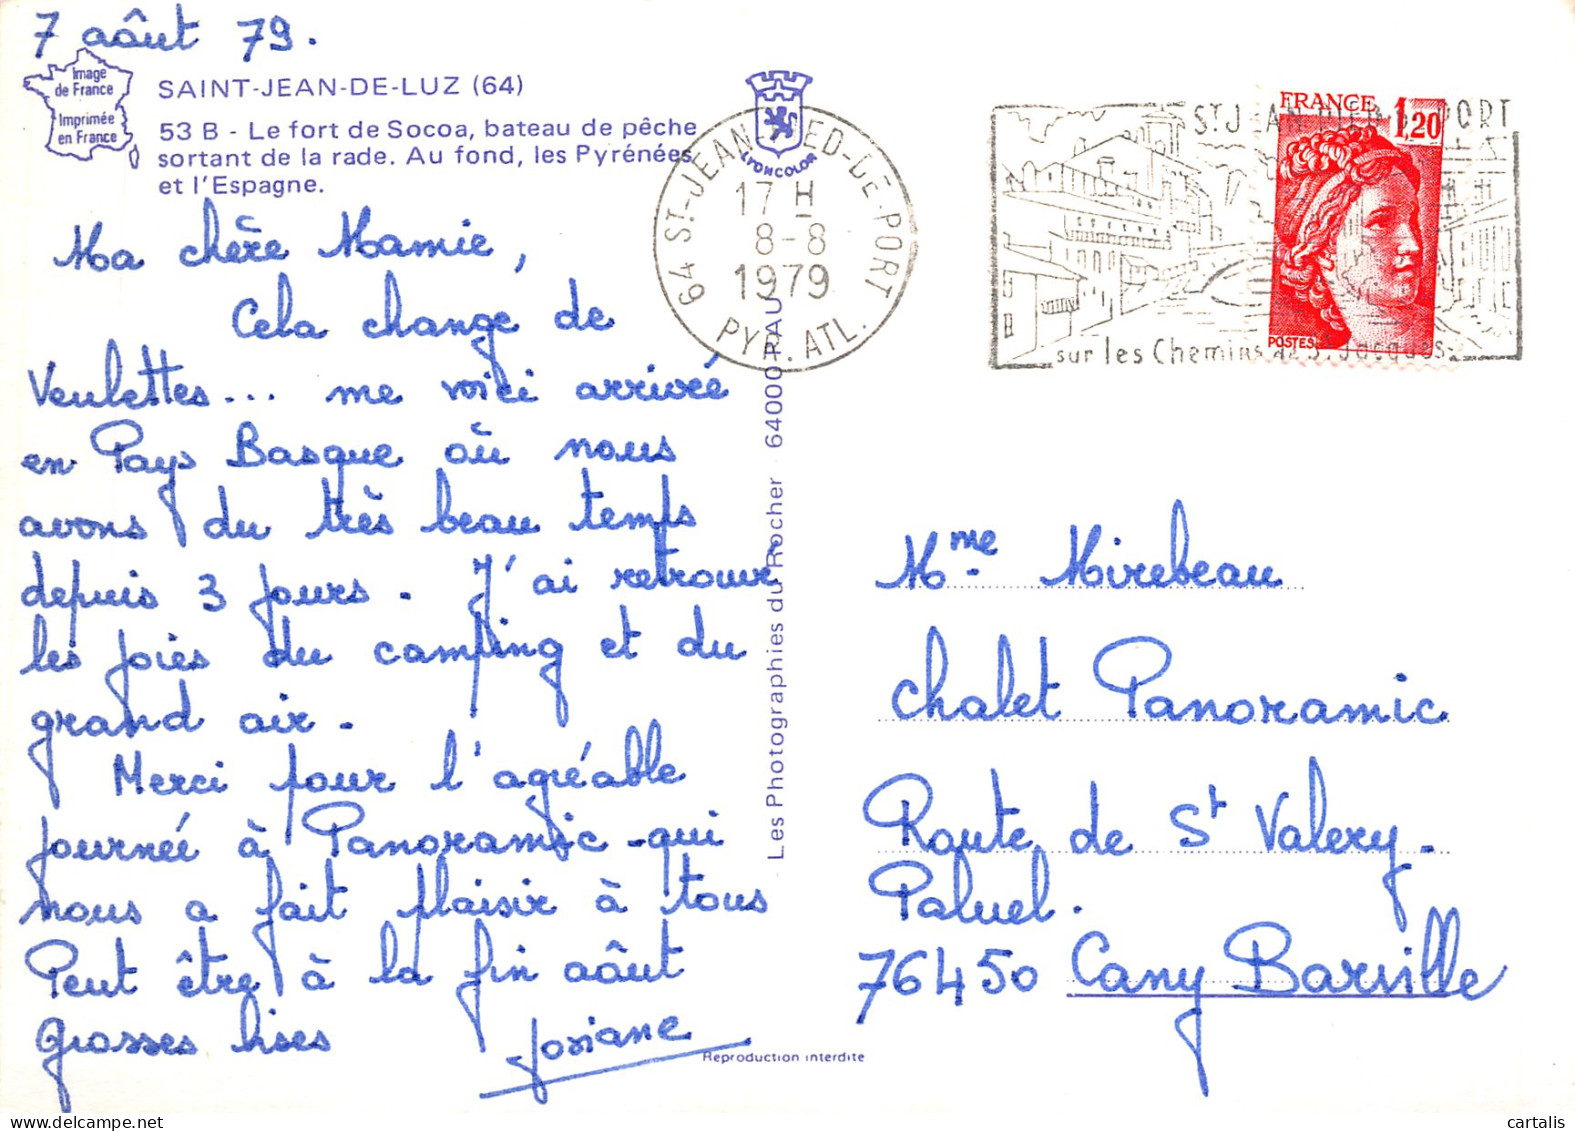 7 aôut 79.
Image
de France
Imprimée
en France
SAINT-JEAN-DE-LUZ (64)
53 B - Le fort de Socoa, bateau de pêche
sortant de la rade. Au fond, les Pyrénées
et l'Espagne.
Ma chère Mamie,
Cela change de
Veulettes... me voici arrivée
en Pays Basque où nous
avons du très beau temps
depuis 3 jours. J'ai retrouvé
les joies du camping et du
grand air.
Merci pour l'agréable
journée à Panoramic qui
nous a fait plaisir à tous
Peut être à la fin aôut
grosses bises Josiane
LYONCOLOR
64 ST-JEAN-PIED-DE-PORT
17 H
8-8
1979
PYR. ATL.
Les Photographies du Rocher - 64000 PAU
Reproduction interdite
ST JEAN PIED DE PORT
sur les Chemins de St Jacques
FRANCE 1,20
POSTES
Mme Mirebeau
Chalet Panoramic
Route de St Valery.
Paluel.
76450 Cany Barville
cartalis